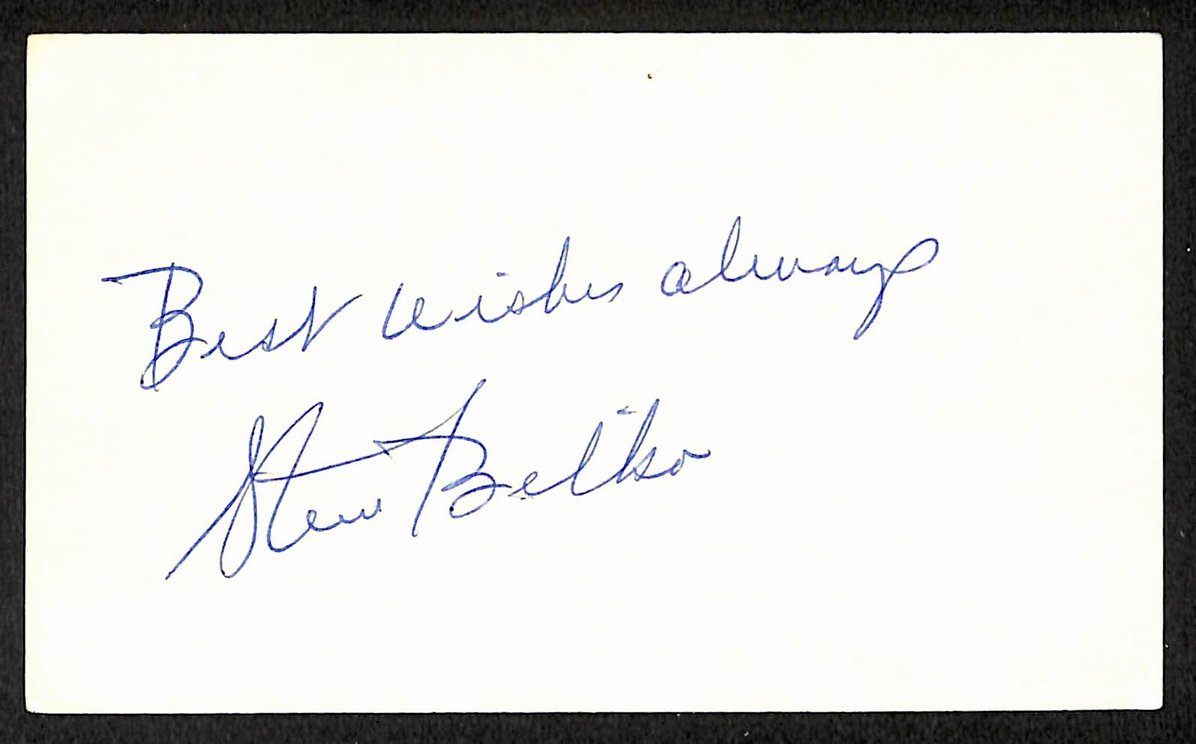 Best Wishes always
Steve Belko